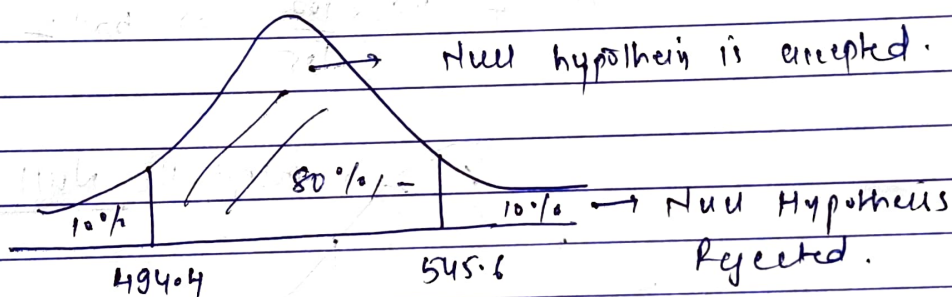 Null hypothesis is accepted.
80%
10%
10% → Null Hypothesis
Rejected.
494.4
545.6